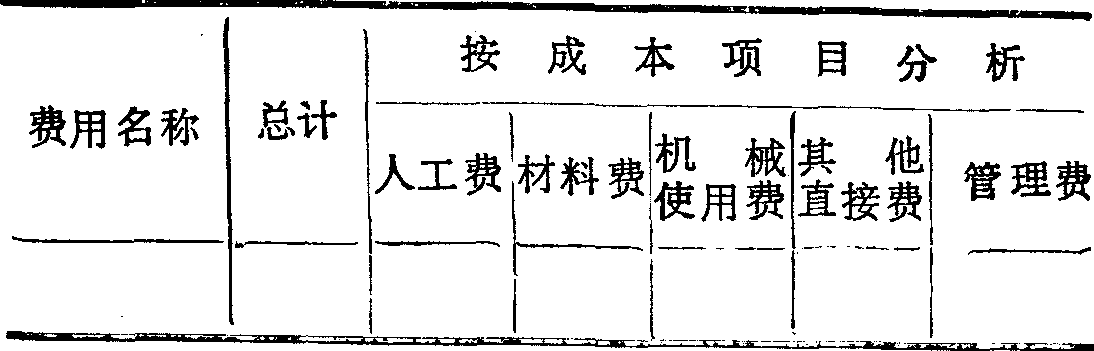 按成本项目分析
费用名称
总计
人工费
材料费
机械
使用费
其他
直接费
管理费